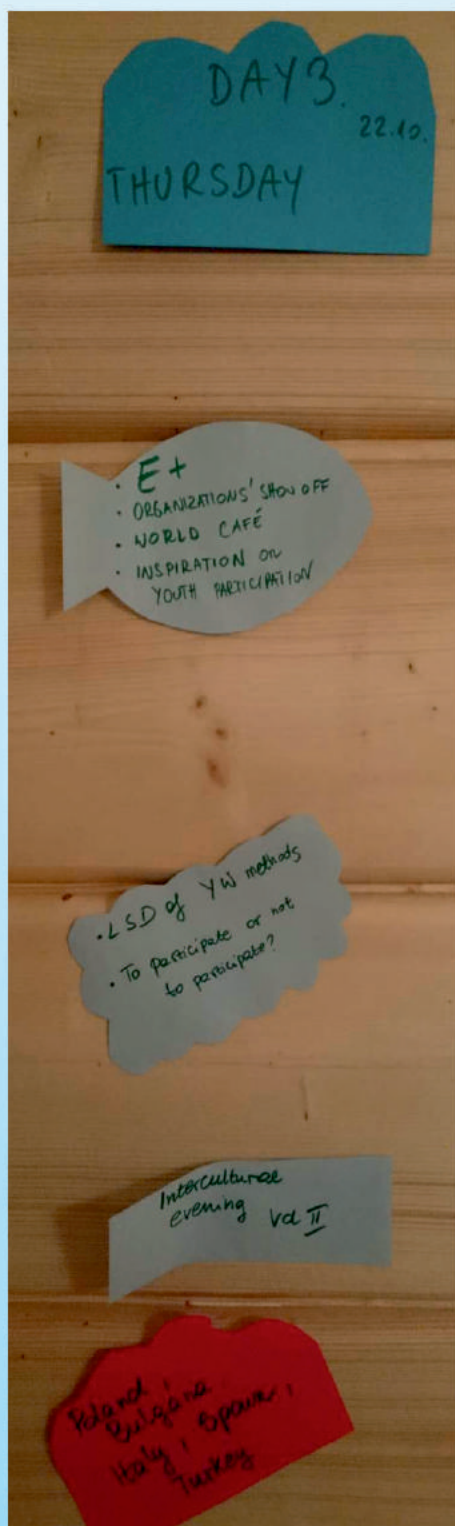 DAY 3.
22.10.
THURSDAY
• E+
• ORGANIZATIONS' SHOW OFF
• WORLD CAFÉ
• INSPIRATION ON
YOUTH PARTICIPATION
• LSD of YW methods
• To participate or not
to participate?
Intercultural
evening vol II
Poland,
Bulgaria
Italy, Spain,
Turkey